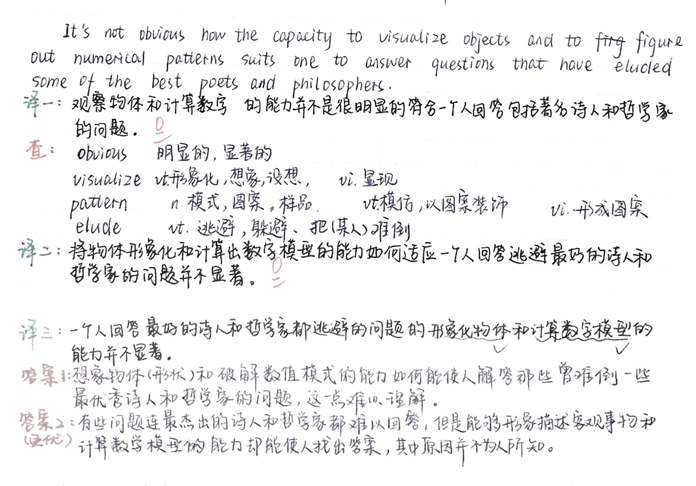 It's not obvious how the capacity to visualize objects and to figure
out numerical patterns suits one to answer questions that have eluded
some of the best poets and philosophers.
译一：观察物体和计算数字 的能力并不是很明显的符合一个人回答包括著名诗人和哲学家
的问题。 0
查： obvious 明显的，显著的
visualize vt.形象化，想象，设想， vi.显现
pattern n.模式，图案，样品 vt.模仿，以图案装饰 vi.形成图案
elude vt. 逃避，躲避、把(某人)难倒
译二：将物体形象化和计算出数字模型的能力如何适应一个人回答逃避最好的诗人和
哲学家的问题并不显著。 0
译三：一个人回答最好的诗人和哲学家都逃避的问题的形象化物体和计算数字模型的
能力并不显著。
答案1：想象物体(形状)和破解数值模式的能力如何能使人解答那些曾难倒一些
最优秀诗人和哲学家的问题，这一点难以理解。
答案2：有些问题连最杰出的诗人和哲学家都难以回答，但是能够形象描述客观事物和
(更优) 计算数学模型的能力却能使人找出答案，其中原因并不为人所知。